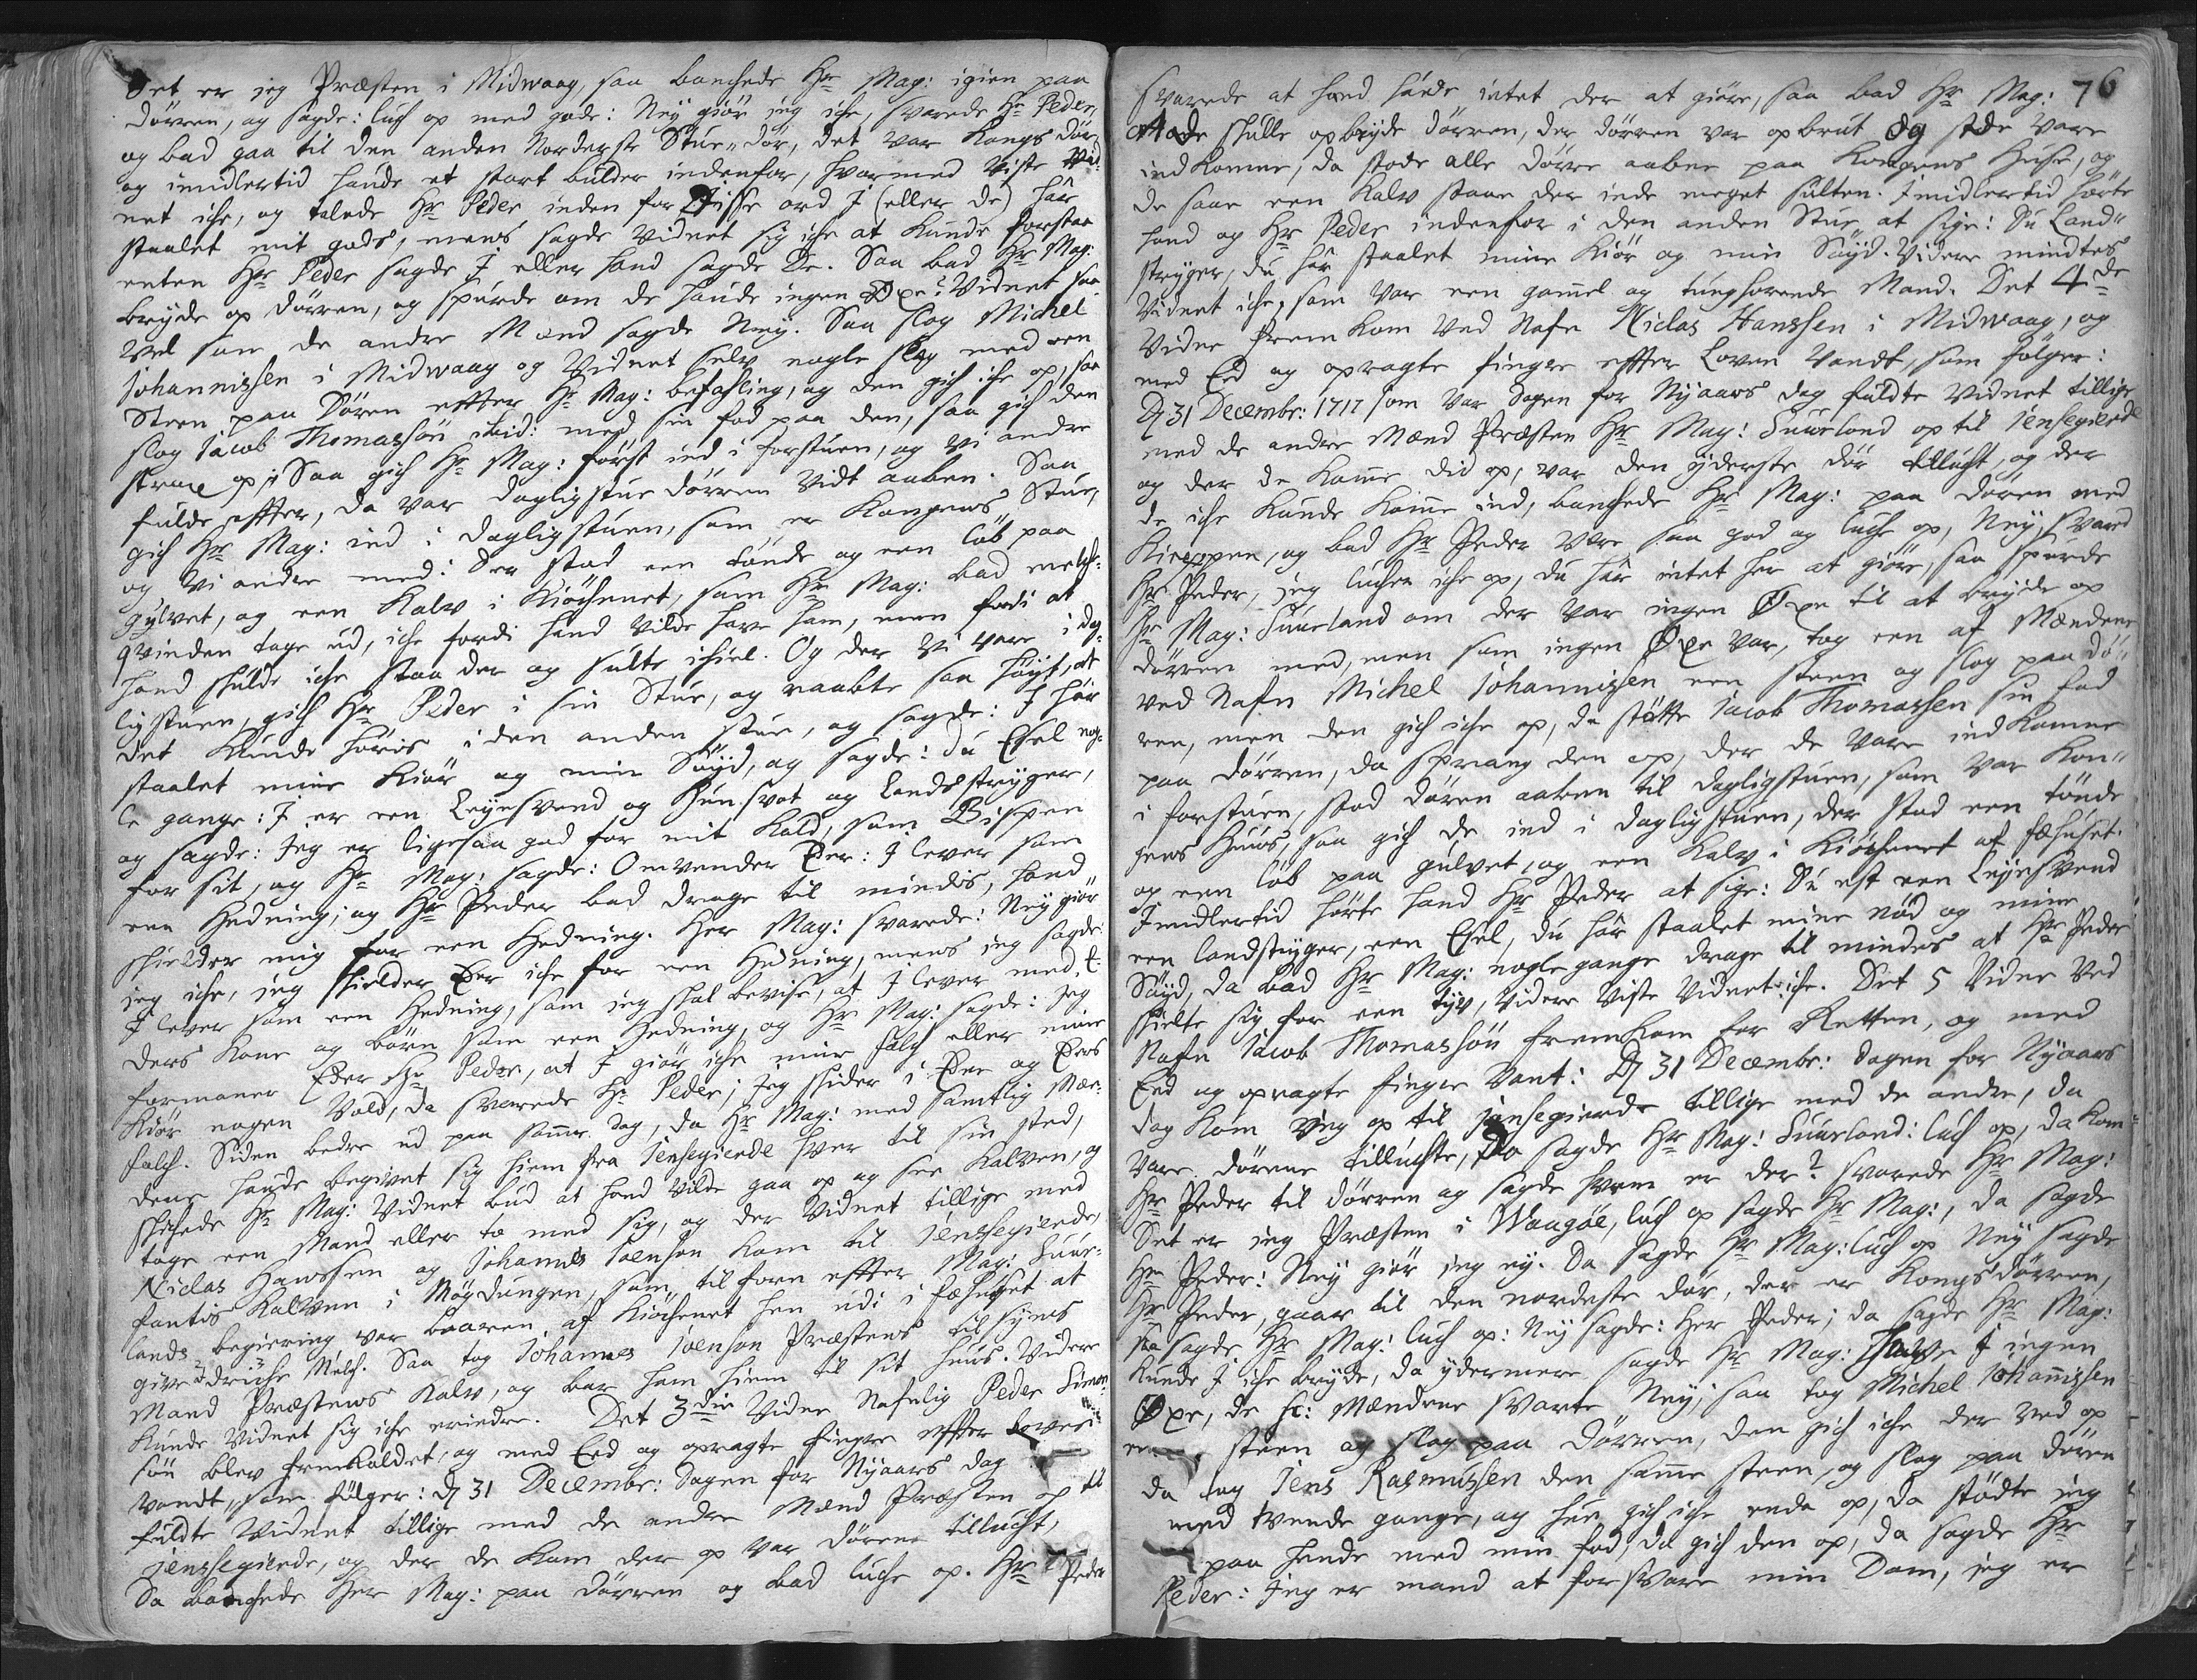 Det er jeg Præsten i Midwaag, saa banchede Hr Mag: igien paa
dörren, og sagde: luch op med gode: Ney giör jeg iche, svarede Hr Peder,
og bad gaa til den anden Norderste Stue-dör, det var Kongs dör,
og imidlertid haude et stort bulder indenfor, hvormed viste Vid-
net iche, og talede Hr Peder inden for disse ord J (eller de) här
staalet mit gods, mens sagde Vidnet sig iche at kunde forstaa
enten Hr Peder sagde J eller hand sagde De. Saa bad Hr Mag:
bryde op dörren, og spurde om de hafde ingen Öxe? Vidnet saa
Vel som de andre Mænd sagde Ney. Saa slog Michel
Johannissen i Midwaag og Vidnet selv nogle slag med een
Steen paa Dören effter Hr Mag: befahling, og den gich iche op, saa
slog Jacob Thomassön ibid: med sin fod paa den, saa gich den
strax op; Saa gich Hr Mag: först ind i forstuen, og vi andre
fulde effter, da var dagligstue dörren vidt aaben. Saa
gich Hr Mag: ind i dagligstuen, som er Kongens Stue,
og vi andre med: Der stod een tönde og een löb paa
gulvet, og een Kalv i Kiöchenet, som Hr Mag: bad melch-
qvinden tage ud, iche fordi hand vilde have ham, men fordi at
hand skulde iche staa der og sulte ihiel. Og der vi vare i dag-
ligstuen, gich Hr Peder i sin Stue, og raabte saa höyt, at
det kunde höris i den anden stue, og sagde: J här
staalet mine Kiör og min Söyd, og sagde: du Esel nog-
le gange: J er een Leyesvend og Hunsvot og Landstryger,
og sagde: Jeg er ligesaa god for mit Kald, som Bispen
for sit, og Hr Mag: sagde: Omvender Eder: J lever som
een Hedning; og Hr Peder bad drage til mindes, hand
skielder mig for een Hedning. Her Mag: svarede: Ney giör
jeg iche, jeg skielder Eder iche for een Hedning, mens jeg sagde:
J lever som een Hedning, som jeg skal bevise, at J lever med E-
ders Kone og börn som een Hedning, og Hr Mag: sagde: Jeg
formaner Eder Hr Peder, at J giör iche mine folch eller mine
Kiör nogen Vold, da svarede Hr Peder; Jeg skider i Eder og Eders
folch. Siden bedre ud paa samme dag, da Hr Mag: med samtlig Mæn-
dene hafde begivet sig hiem fra Jensegierde hver til sin sted,
skichede Hr Mag: Vidnet bud at hand vilde gaa op og see Kalven, og
tage een Mand eller to med sig, og der Vidnet tillige med
Niclas Hanssen og Johannes Joensön kom til Jenssegierde,
fantis Kalven i Mögdungen, som tilforn effter Mag: Suur-
lands begiering var baaren af Kiöchenet hen udi i fæhuset at
give drichе Melch. Saa tog Johannes Joensön Præstens tilsyns
Mand Præstens Kalv, og bar ham hiem til sit huus. Videre
kunde Vidnet sig iche erindre. Det 3die Vidne Nafnlig Peder Simon-
sön blev fremkaldet, og med Eed og opragte fingre effter Loven
vandt, som fölger: D 31 Decembr: Dagen for Nyaars dag
fuldte Vidnet tillige med de andre Mænd Præsten op til
jenssegierde, og der de kom der op var dörene tillucht,
Da banchede Her Mag: paa dörren og bad luche op. Hr Peder
76
svarede at hand hafde intet der at giöre, saa bad Hr Mag:
at de skulle opbryde dörren, der dörren var opbrut og de vare
ind komne, da stode alle dörre aabne paa Kongens Huse, og
de saae een Kalv staae der inde meget sulten. Imidlertid hörte
hand og Hr Peder indenfor i den anden Stue at sige: Du Land-
stryger, du här staalet mine Kiör og min Söyd. Videre mindtes
Vidnet iche, som var een gamel og tunghörende Mand. Det 4de
Vidne fremkom ved Nafn Niclas Hanssen i Midwaag, og
med Eed og opragte fingre effter Loven vandt, som fölger:
D 31 Decembr: 1717 som var Dagen for Nyaars dag fuldte Vidnet tillige
med de andre Mænd Præsten Hr Mag: Suurland op til Jensegierde
og der de kome did op, var den yderste dör tillucht, og der
de iche kunde kome ind, banchede Hr Mag: paa dören med
Kieppen, og bad Hr Peder være saa god og luche op, Ney, svared
Hr Peder, jeg lucher iche op, du här intet her at giöre, saa spurde
Hr Mag: Suurland om der var ingen Öxe til at bryde op
dörren med, men som ingen Öxe var, tog een af Mændene
ved Nafn Michel Johannissen een steen og slog paa dö-
ren, men den gich iche op, da stötte Jacob Thomassen sin fod
paa dörren, da sprang den op, der de vare indkomne
i forstuen, stod dören aaben til dagligstuen, som var Kon-
gens huus, saa gich de ind i dagligstuen, der stod een tönde
og een löb paa gulvet, og een Kalv i Kiöchenet af fæhuset.
Imidlertid hörte hand Hr Peder at sige: Du est een Leyesvend
een landstryger, een Esel, du här staalet mine nöd og mine
Söyd, da bad Hr Mag: nogle gange drage til mindes at Hr Peder
skielte sig for een tyv, Videre viste Vidnet iche. Det 5 Vidne ved
Nafn Jacob Thomassön fremkom for Retten, og med
Eed og opragte fingre vant: D 31 Decembr: dagen for Nyaars
dag kom jeg op til jensegierde tillige med de andre, da
vare dörene tilluchte, da sagde Hr Mag: Suurland: luch op, da kom
Hr Peder til dörren og sagde hvem er der? svarede Hr Mag:
Det er jeg Præsten i Waagöe, luch op sagde Hr Mag:, da sagde
Hr Peder: Ney giör jeg ey. Da sagde Hr Mag: luch op Ney sagde
Hr Peder, gaar til den nordeste dör, der er Kongs dörren,
saa sagde Hr Mag: luch op: Ney sagde: Her Peder; da sagde Hr Mag:
kunde J iche bryde, da ydermere sagde Hr Mag: Have J ingen
Öxe, de sc: Mændene svarte Ney; saa tog Michel Johannissen
en steen og slog paa dörren, den gich iche der ved op
da tog Jens Rasmussen den samme steen, og slog paa dören
med tvende gange, og hun gich iche enda op, da stödte jeg
paa hende med min fod, da gich den op, da sagde Hr
Peder: Jeg er mand at forsvare min Dom, jeg er